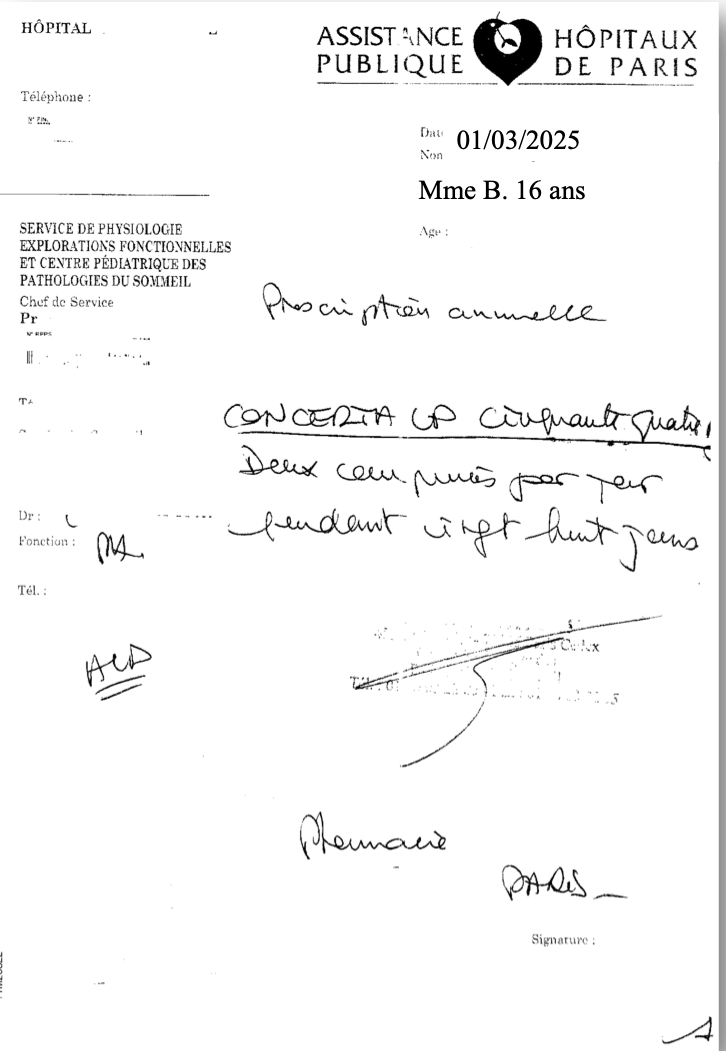 HÔPITAL
ASSISTANCE PUBLIQUE HÔPITAUX DE PARIS
Téléphone :
Date 01/03/2025
Nom
Mme B. 16 ans
Age :
SERVICE DE PHYSIOLOGIE
EXPLORATIONS FONCTIONNELLES
ET CENTRE PÉDIATRIQUE DES
PATHOLOGIES DU SOMMEIL
Chef de Service
Pr
N° RPPS
Prescription annuelle
CONCERTA LP cinquante quatre,
Deux comprimés par jour
pendant vingt huit jours
Dr :
Fonction :
Tél. :
ALD
Cedex
Pharmacie
PARIS
Signature :